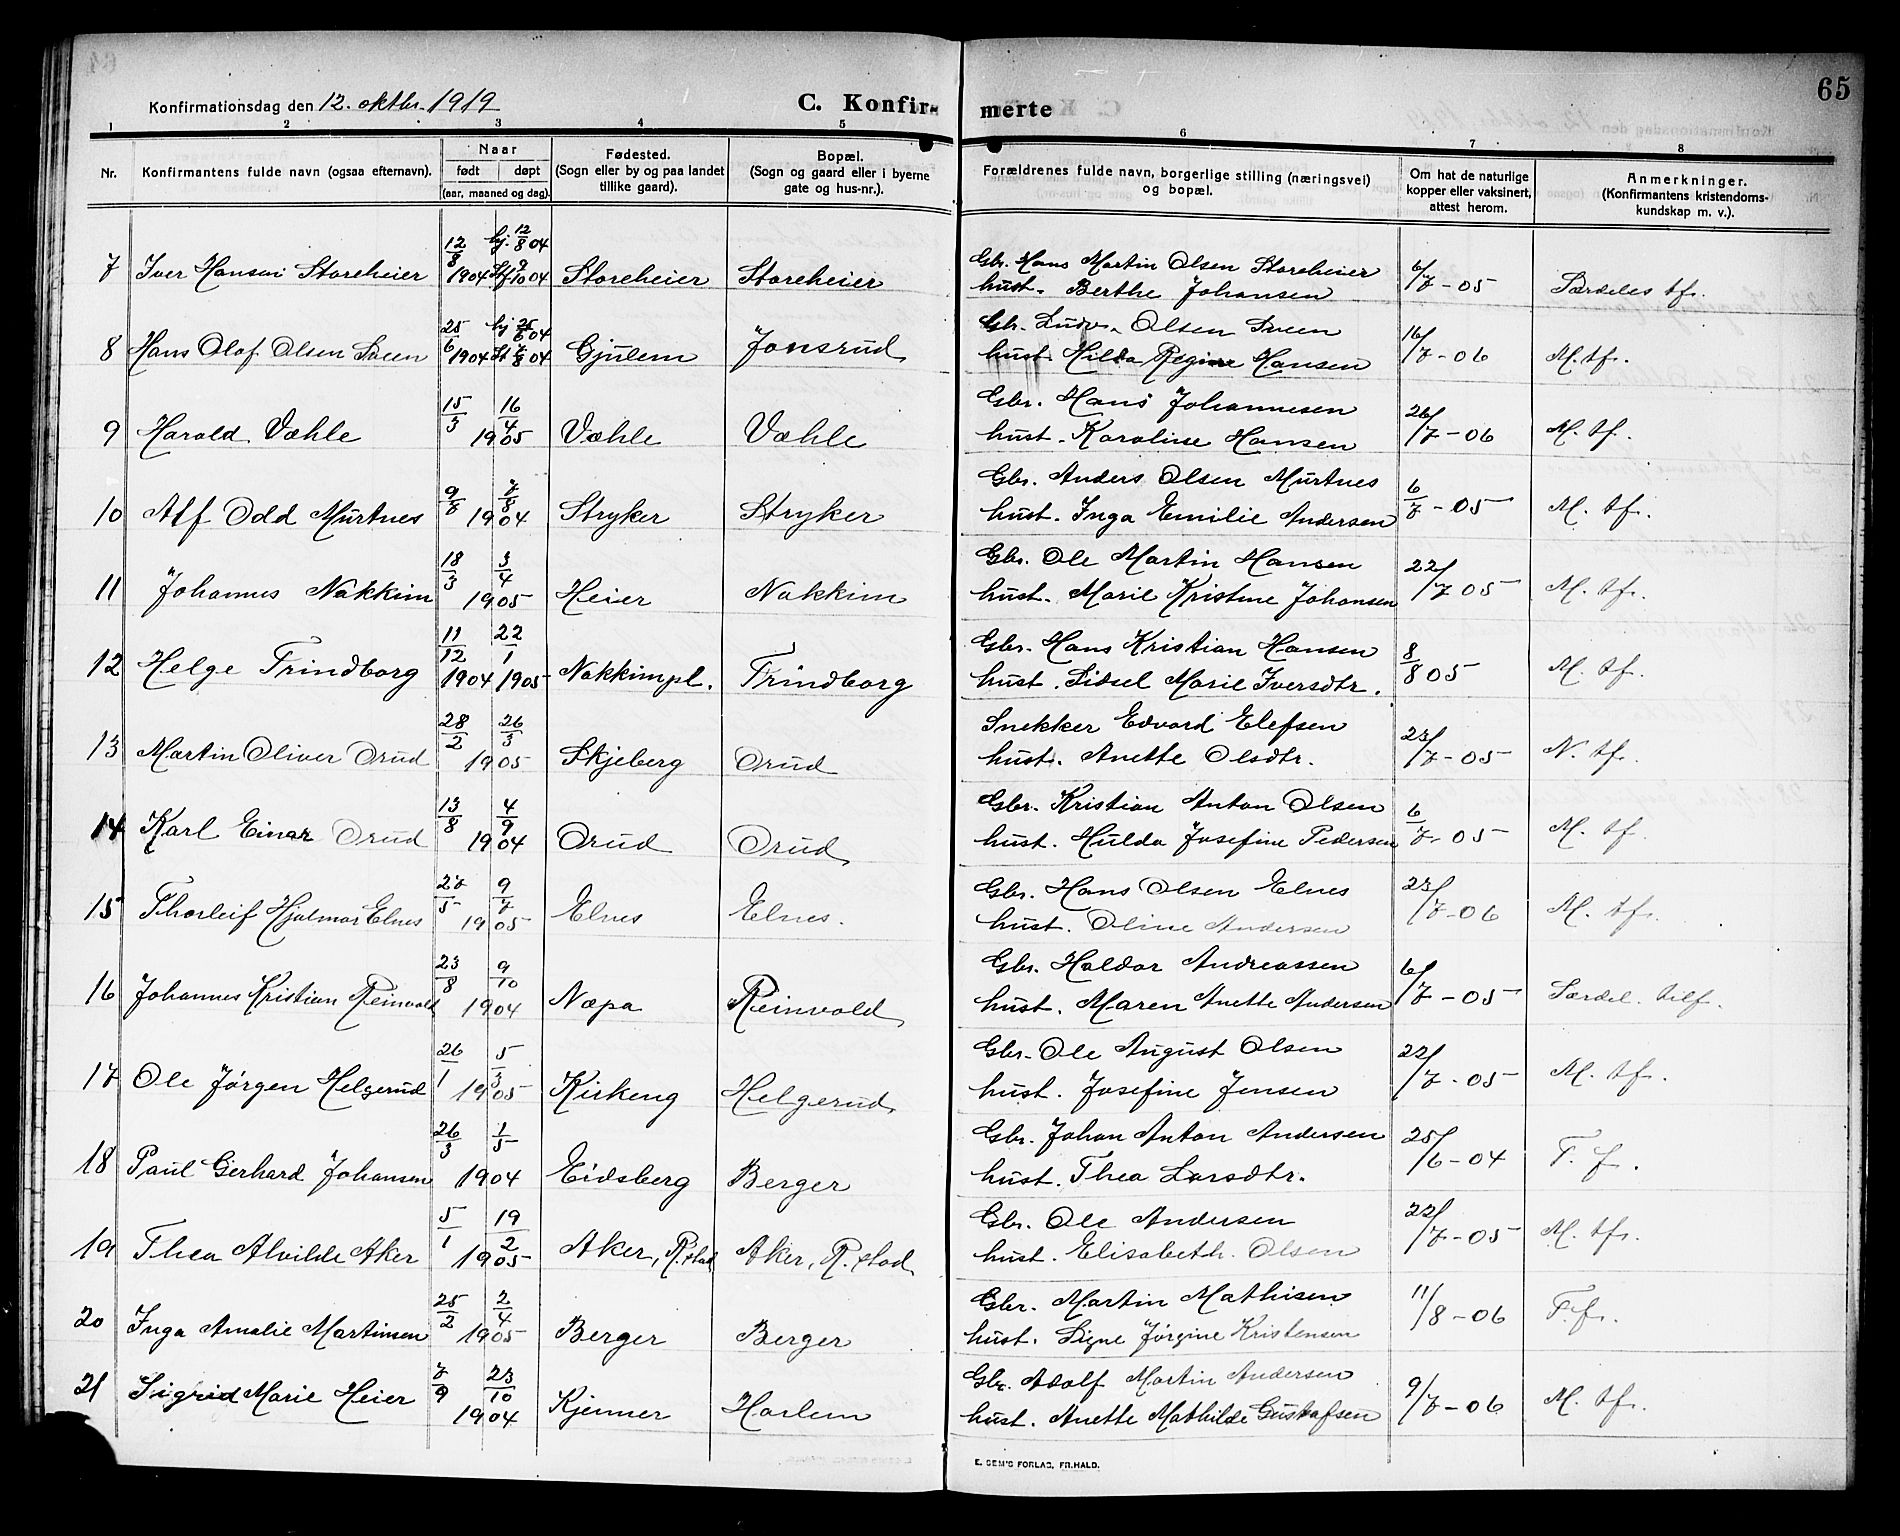 65
Konfirmationsdag den 12. oktbr. 1919 C. Konfir- merte
1 2 3 4 5 6 7 8
Nr. Konfirmantens fulde navn (ogsaa efternavn). Naar født døpt (aar, maaned og dag). Fødested. (Sogn eller by og paa landet tillike gaard). Bopæl. (Sogn og gaard eller i byerne gate og hus-nr.). Forældrenes fulde navn, borgerlige stilling (næringsvei) og bopæl. Om hat de naturlige kopper eller vaksinert, attest herom. Anmerkninger. (Konfirmantens kristendoms- kundskap m. v.).
12/8 hj. 12/8 04 Gbr. Hans Martin Olsen Storeheier 6/7 - 05
7 Iver Hansen Storeheier 1904 9/10 04 Storeheier Storeheier hust. Berthe Johansen Særdeles tf.
25/6 hj 25/6 04 Gbr. Ludv. Olsen Sveen 16/7 - 06
8 Hans Olaf Olsen Sveen 1904 7/8 04 Gjulem Jonsrud hust. Hilda Regine Hansen M. tf.
15/3 16/4 Gbr. Hans Johannesen 26/7 - 06
9 Harald Væhle 1905 Væhle Væhle hust. Karoline Hansen M. tf.
9/7 7/8 Gbr. Anders Olsen Murtnes 6/7 - 05
10 Alf Odd Murtnes 1904 Stryker Stryker hust. Inga Emilie Andersen M. tf.
18/3 3/4 Gbr. Ole Martin Hansen 22/7 05
11 Johannes Nakkim 1905 Heier Nakkim hust. Marie Kristine Johansen M. tf.
11/12 22/1 Gbr. Hans Kristian Hansen 8/8 05
12 Helge Trindborg 1904 1905 Nakkimpl. Trindborg hust. Sidsel Marie Iversdtr. M. tf.
28/2 26/3 Snekker Edvard Elefsen 23/7 - 05
13 Martin Oliver Orud 1905 Skjeberg Orud hust. Anette Olsdtr. N. tf.
13/8 4/9 Gbr. Kristian Anton Olsen 6/7 - 05
14 Karl Einar Orud 1904 Orud Orud hust. Hulda Josefine Pedersen M. tf
27/5 9/7 Gbr. Hans Olsen Elnes 23/7 - 06
15 Thorleif Hjalmar Elnes 1905 Elnes Elnes. hust. Oline Andersen M. tf.
23/8 9/10 Gbr. Haldor Andreassen 6/7 - 05
16 Johannes Kristian Reinvold 1904 Næpa Reinvold hust. Maren Anette Andersen Særdel. tilf.
26/1 5/3 Gbr. Ole August Olsen 22/7 - 05
17 Ole Jørgen Helgerud 1905 Kirkeng Helgerud hust. Josefine Jensen M. tf.
26/3 1/5 Gbr. Johan Anton Andersen 25/6 - 04
18 Paul Gerhard Johansen 1904 Eidsberg Berger hust. Thea Larsdtr. T. f.
5/1 19/2 Gbr. Ole Andersen 22/7 - 05
19 Thea Alvilde Aker 1905 Aker, R.stad Aker, R.stad hust. Elisabeth Olsen M. tf.
25/2 2/4 Gbr. Martin Mathisen 11/8 - 06
20 Inga Amalie Martinsen 1905 Berger Berger hust. Signe Jørgine Kristensen T. f.
7/9 23/10 Gbr. Adolf Martin Andersen 9/7 - 06
21 Sigrid Marie Heier 1904 Kjenner Harlem hust. Anette Mathilde Gustafsen M. tf.
E. SEM'S FORLAG, FR.HALD.